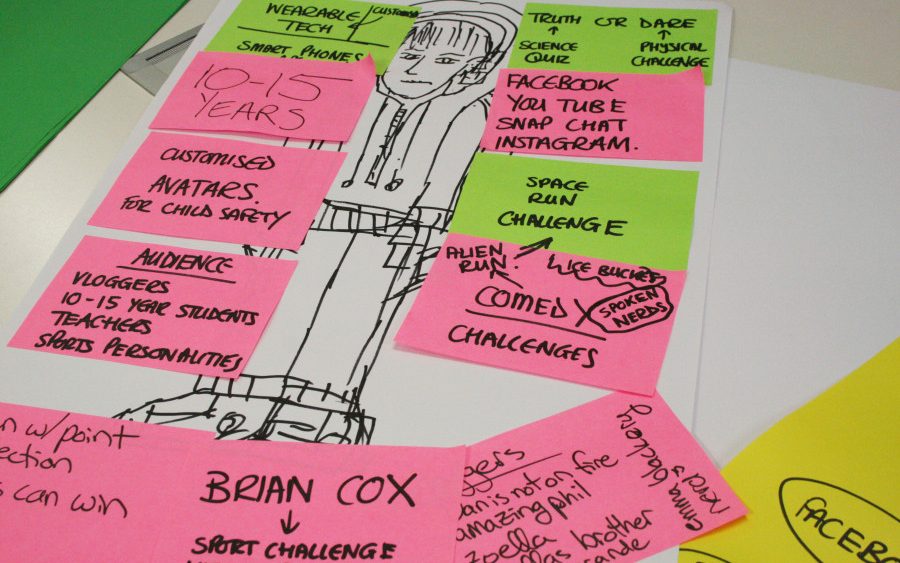 WEARABLE
TECH
CUSTOMISE
SMART PHONES
10-15
YEARS
CUSTOMISED
AVATARS.
FOR CHILD SAFETY
AUDIENCE
VLOGGERS
10-15 YEAR STUDENTS
TEACHERS
SPORTS PERSONALITIES
TRUTH OR DARE
SCIENCE
QUIZ
PHYSICAL
CHALLENGE
FACEBOOK
YOU TUBE
SNAP CHAT
INSTAGRAM.
SPACE
RUN
CHALLENGE
ALIEN
RUN.
ICE BUCKET
COMEDY
SPOKEN
NERDS
CHALLENGES
w/ point
ection
can win
BRIAN COX
SPORT CHALLENGE
ggers
dan is not on fire
amazing phil
zoella
brother
emma blackery
nerd 3
FACEBO